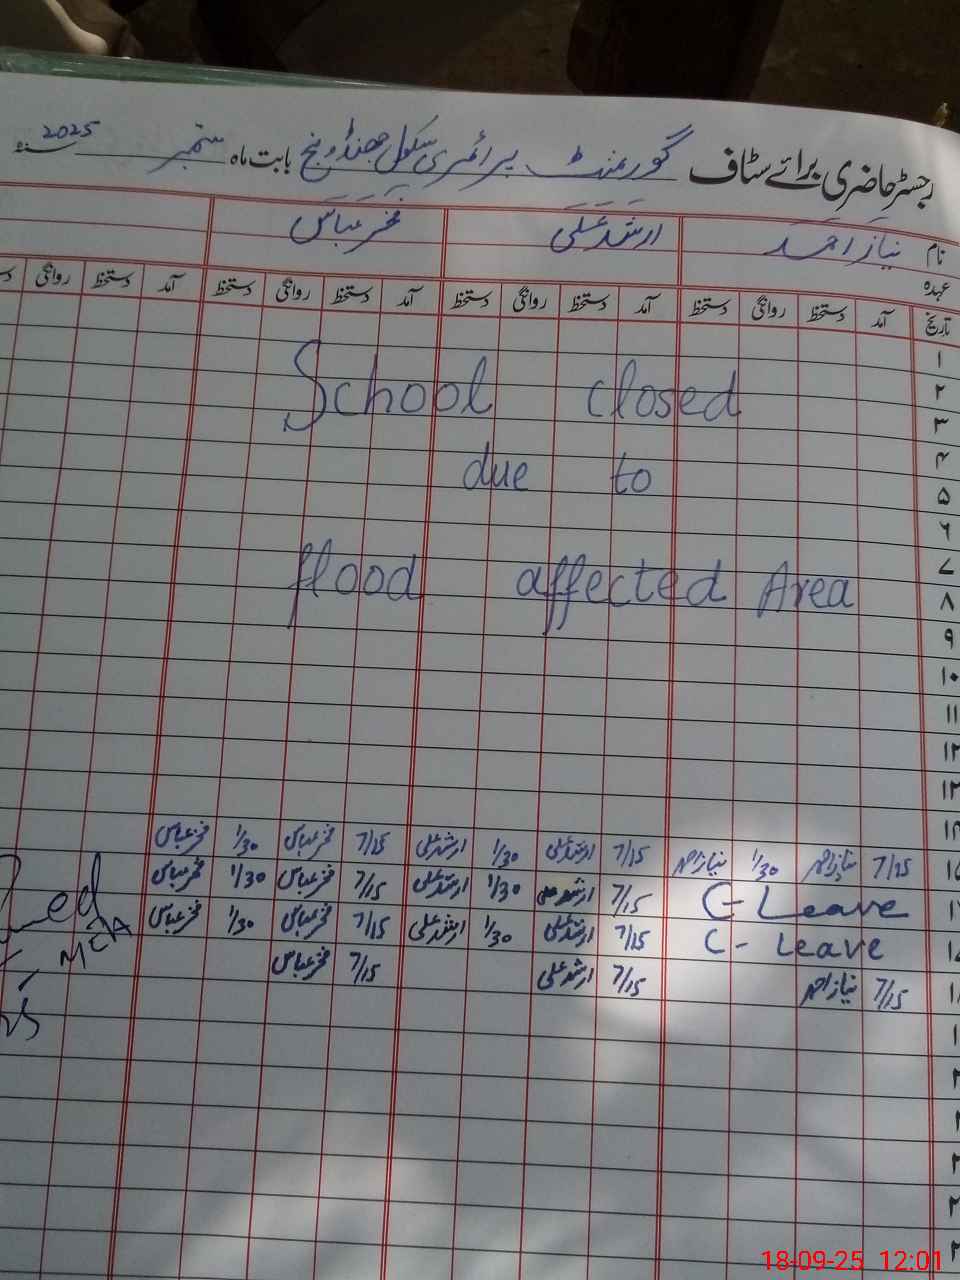 رجسٹر حاضری برائے سٹاف گورنمنٹ پرائمری سکول جھنڈو بابت ماہ ستمبر سنہ 2025
نام نیاز احمد ارشد علی فخر عباس
عہدہ
تاریخ آمد دستخط روانگی دستخط آمد دستخط روانگی دستخط آمد دستخط روانگی دستخط آمد دستخط روانگی
۱
۲ School closed
۳
۴ due to
۵
۶
۷
۸ flood affected Area
۹
۱۰
۱۱
۱۲
۱۳
7/15 نیاز احمد 1/30 نیاز احمد 7/15 ارشد علی 1/30 ارشد علی 7/15 فخر عباس 1/30 فخر عباس
C-Leave 7/15 ارشد علی 1/30 ارشد علی 7/15 فخر عباس 1/30 فخر عباس
C-Leave 7/15 ارشد علی 1/30 ارشد علی 7/15 فخر عباس 1/30 فخر عباس
7/15 نیاز احمد 7/15 ارشد علی 7/15 فخر عباس
MEA
18-09-25 12:01